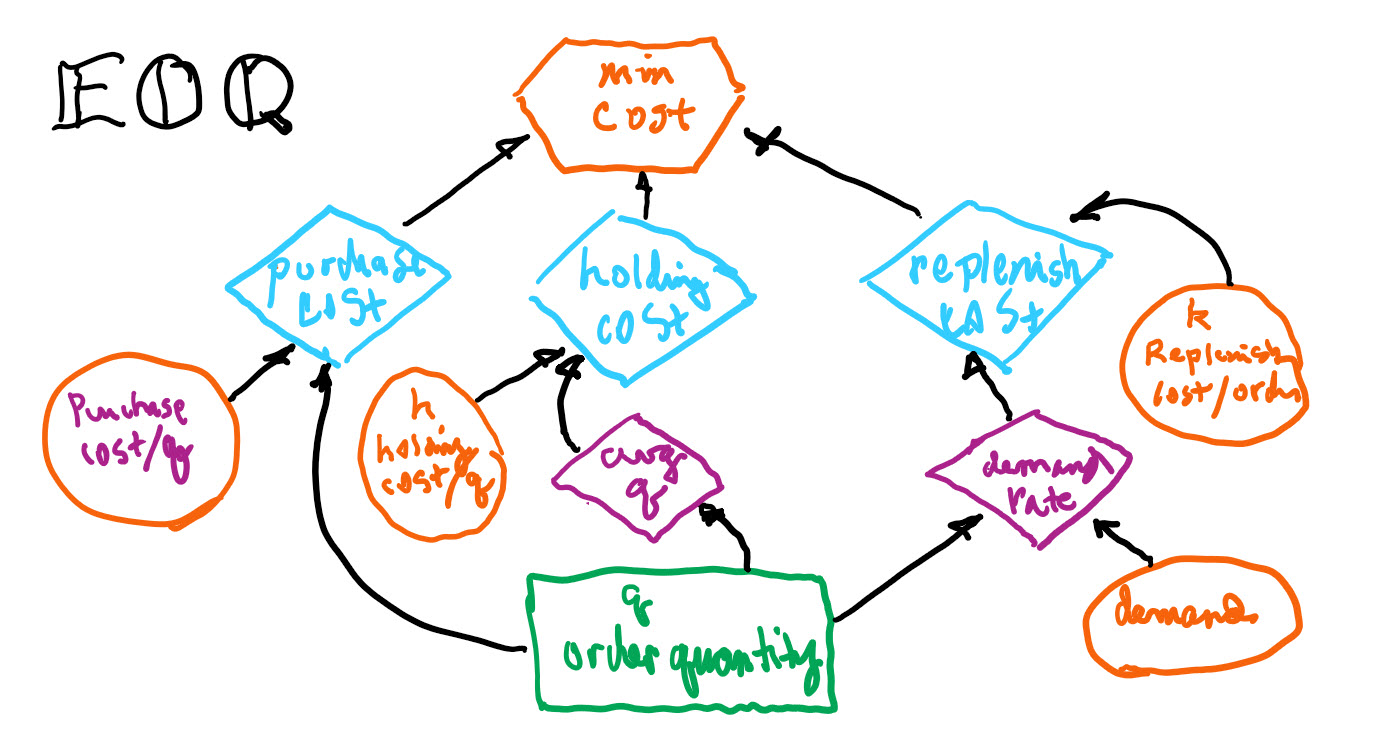 EOQ
min
cost
purchase
cost
holding
cost
replenish
cost
k
Replenish
cost/order
Purchase
cost/q
h
holding
cost/q
avg
q
demand
rate
q
order quantity
demand